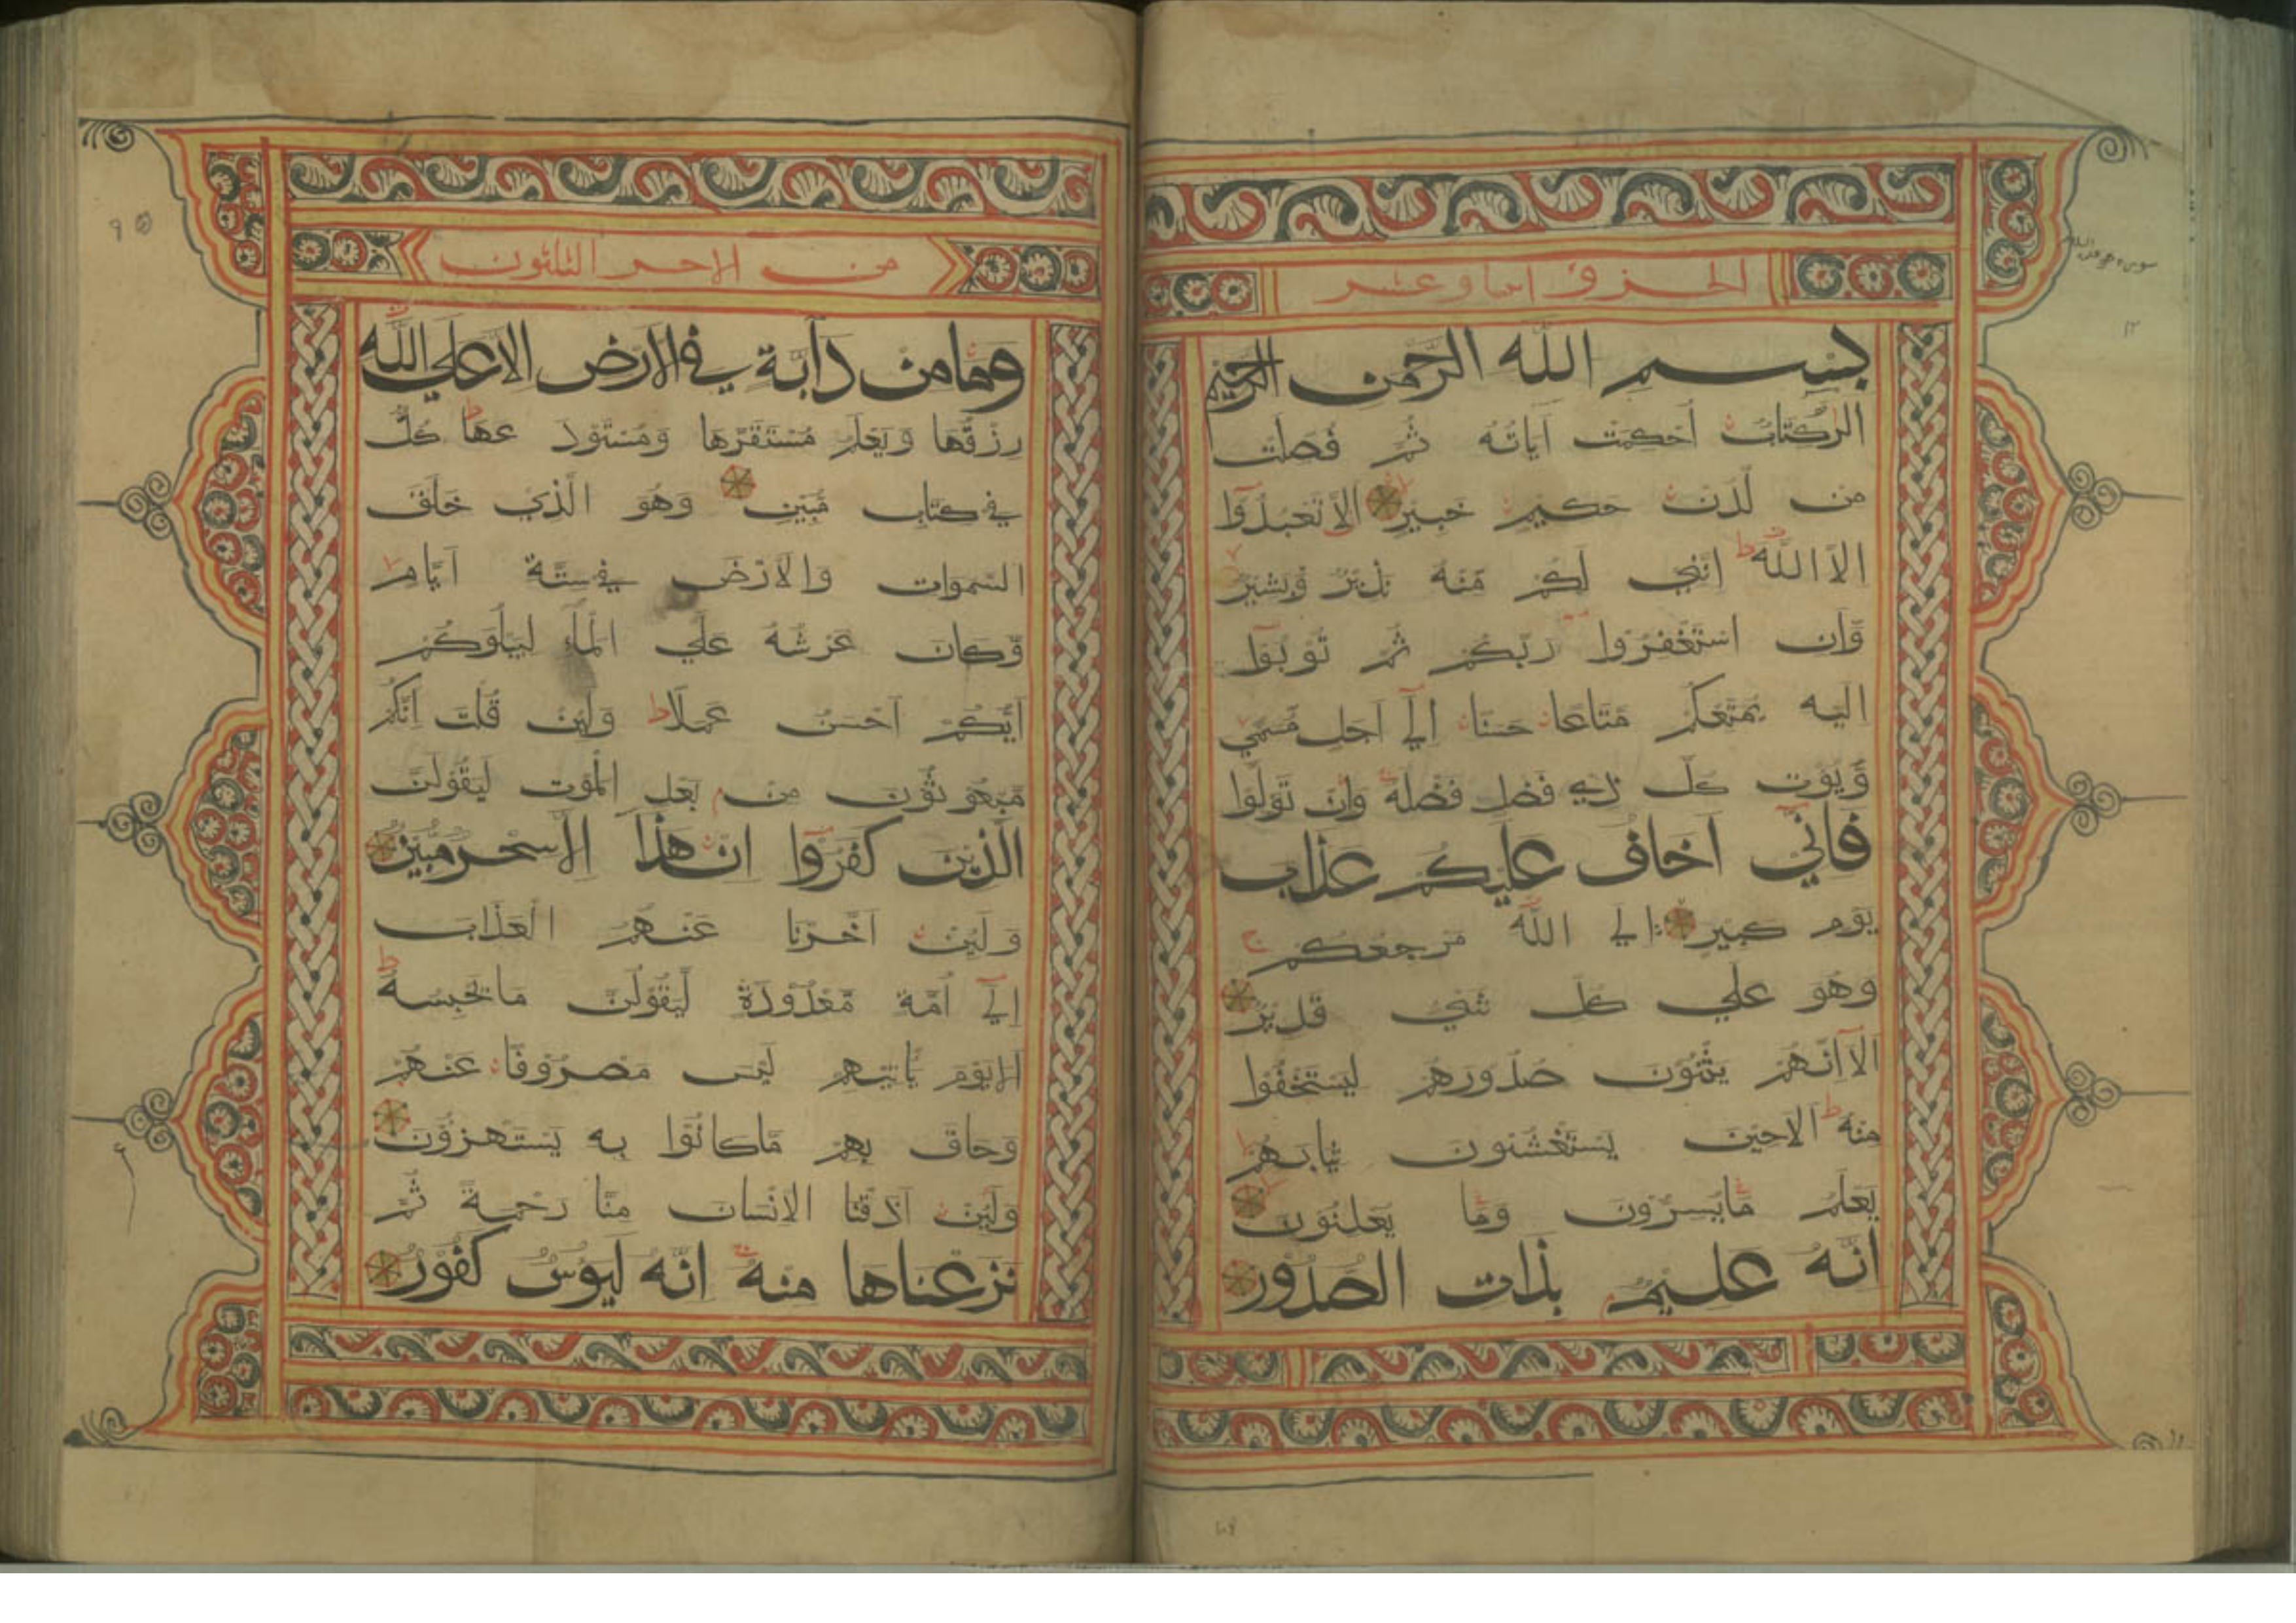 بِسْمِ اللّٰه الرَّحْمٰن الرَّحِيْم
الٓرٰ كِتَابٌ اُحْكِمَتْ آيَاتُهُ ثُمَّ فُصِّلَتْ
مِنْ لَّدُنْ حَكِيْمٍ خَبِيْرٍ اَلَّا تَعْبُدُوْا
اِلَّا اللّٰه اِنَّنِي لَكُمْ مِّنْهُ نَذِيْرٌ وَّبَشِيْرٌ
وَّاَنِ اسْتَغْفِرُوا رَبَّكُمْ ثُمَّ تُوْبُوْا
اِلَيْهِ يُمَتِّعْكُمْ مَّتَاعًا حَسَنًا اِلٰي اَجَلٍ مُّسَمًّي
وَّيُؤْتِ كُلَّ ذِي فَضْلٍ فَضْلَهُ وَاِنْ تَوَلَّوْا
فَاِنِّي اَخَافُ عَلَيْكُمْ عَذَابَ
يَوْمٍ كَبِيْرٍ اِلَي اللّٰه مَرْجِعُكُمْ
وَهُوَ عَلٰي كُلِّ شَيْءٍ قَدِيْرٌ
اَلَا اِنَّهُمْ يَثْنُوْنَ صُدُوْرَهُمْ لِيَسْتَخْفُوْا
مِنْهُ اَلَا حِيْنَ يَسْتَغْشُوْنَ ثِيَابَهُمْ
يَعْلَمُ مَا يُسِرُّوْنَ وَمَا يُعْلِنُوْنَ
اِنَّهُ عَلِيْمٌ بِذَاتِ الصُّدُوْرِ
وَمَا مِنْ دَآبَّةٍ فِي الْاَرْضِ اِلَّا عَلَي اللّٰه
رِزْقُهَا وَيَعْلَمُ مُسْتَقَرَّهَا وَمُسْتَوْدَعَهَا كُلٌّ
فِي كِتَابٍ مُّبِيْنٍ وَهُوَ الَّذِيْ خَلَقَ
السَّمٰوَاتِ وَالْاَرْضَ فِي سِتَّةِ اَيَّامٍ
وَّكَانَ عَرْشُهُ عَلَي الْمَآءِ لِيَبْلُوَكُمْ
اَيُّكُمْ اَحْسَنُ عَمَلًا وَلَئِنْ قُلْتَ اِنَّكُمْ
مَّبْعُوْثُوْنَ مِنْ بَعْدِ الْمَوْتِ لَيَقُوْلَنَّ
الَّذِيْنَ كَفَرُوْا اِنْ هٰذَا اِلَّا سِحْرٌ مُّبِيْنٌ
وَلَئِنْ اَخَّرْنَا عَنْهُمُ الْعَذَابَ
اِلٰي اُمَّةٍ مَّعْدُوْدَةٍ لَّيَقُوْلُنَّ مَا يَحْبِسُهُ
اَلَا يَوْمَ يَاْتِيْهِمْ لَيْسَ مَصْرُوْفًا عَنْهُمْ
وَحَاقَ بِهِمْ مَّا كَانُوْا بِهِ يَسْتَهْزِؤُوْنَ
وَلَئِنْ اَذَقْنَا الْاِنْسَانَ مِنَّا رَحْمَةً ثُمَّ
نَزَعْنَاهَا مِنْهُ اِنَّهُ لَيَؤُسٌ كَفُوْرٌ